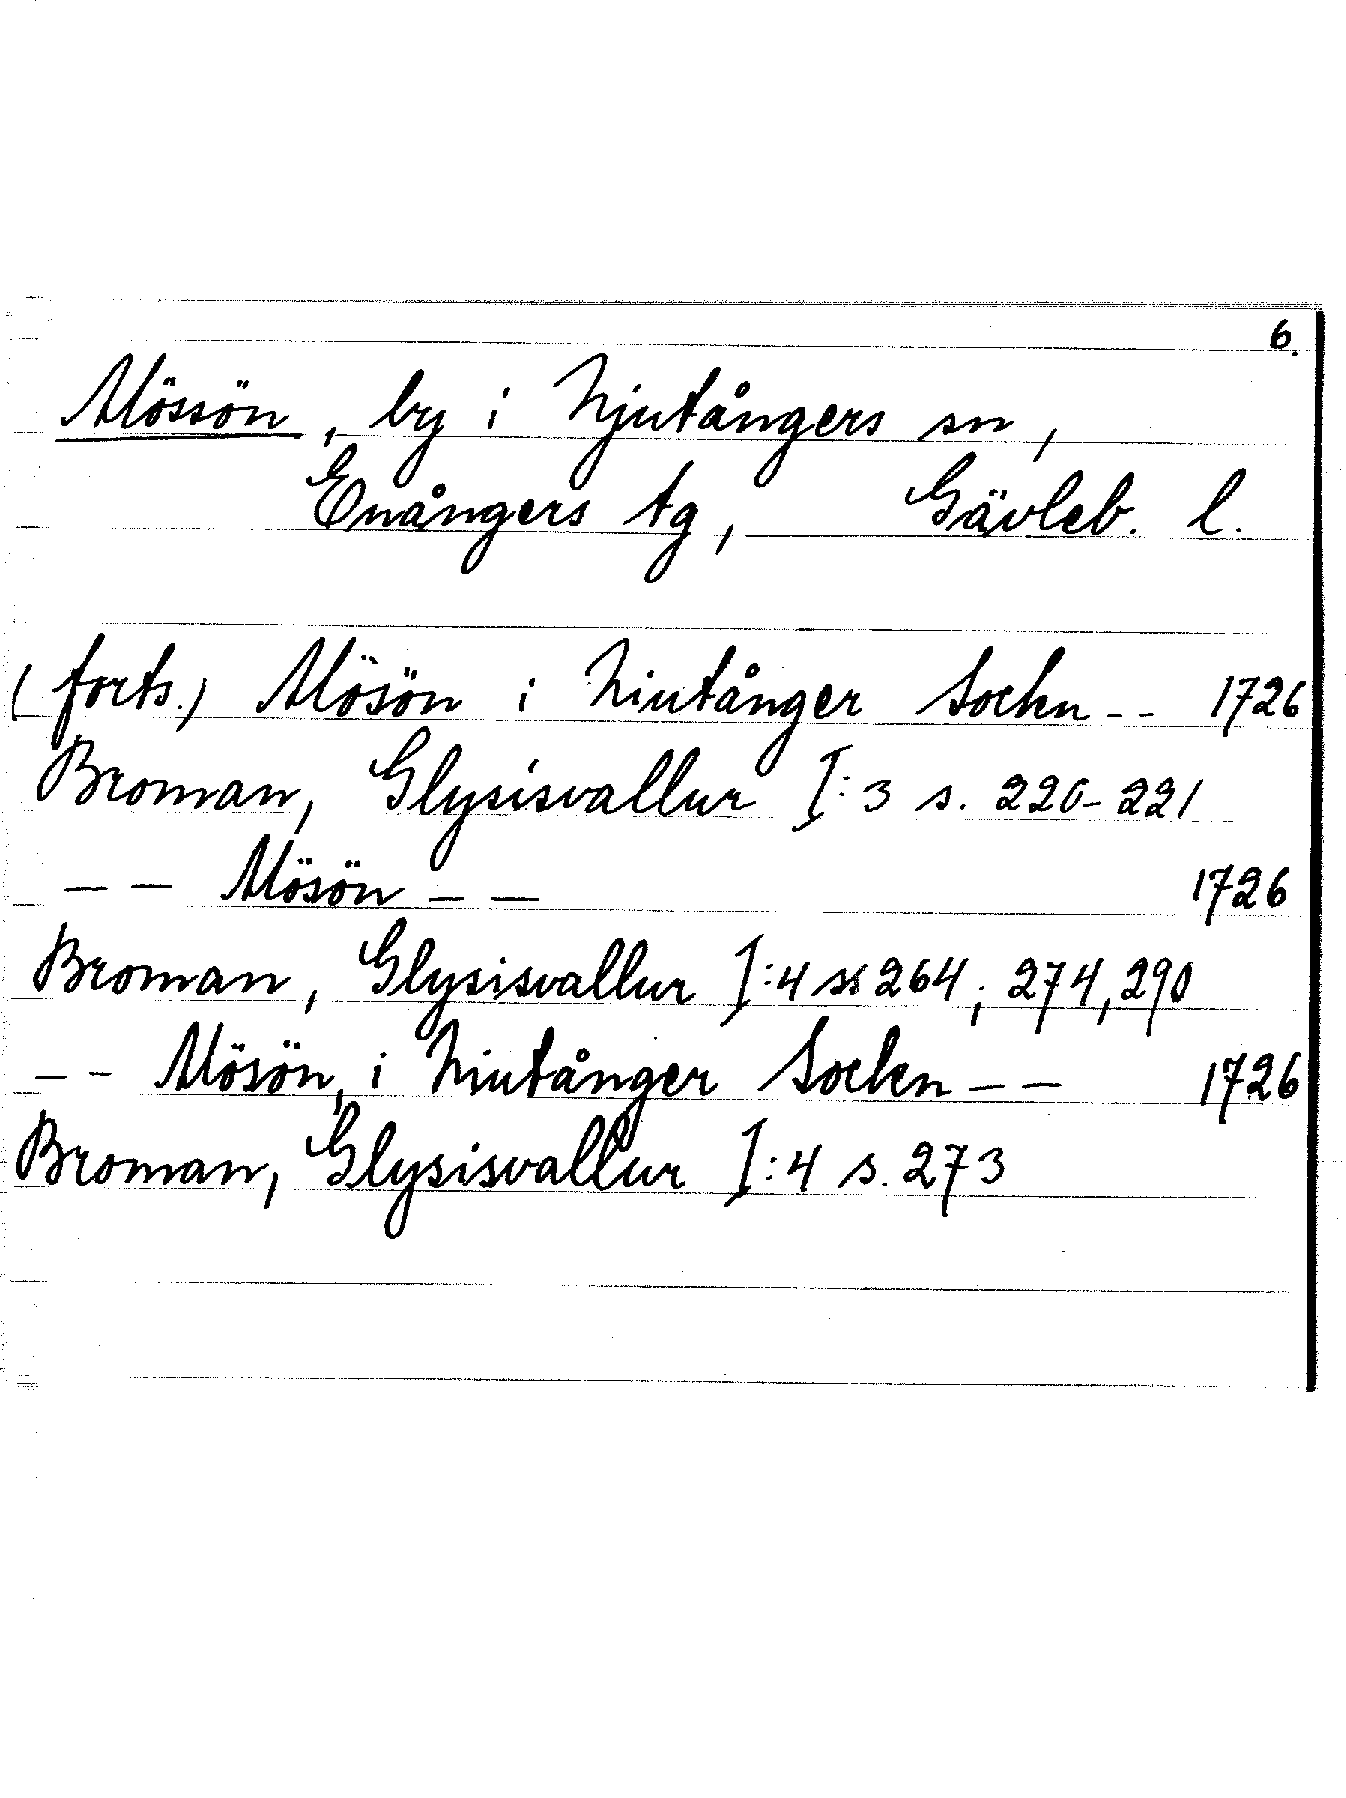 6.
Mössön, by i Njutångers sn,
Enångers tg, Gävleb. l.
(forts.) Mösön i Niutånger Sockn -- 1726
Broman, Glysisvallur I:3 s. 220-221
-- Mösön -- 1726
Broman, Glysisvallur I:4 ss 264; 274, 290
-- Mösön, i Niutånger Sockn -- 1726
Broman, Glysisvallur I:4 s. 273